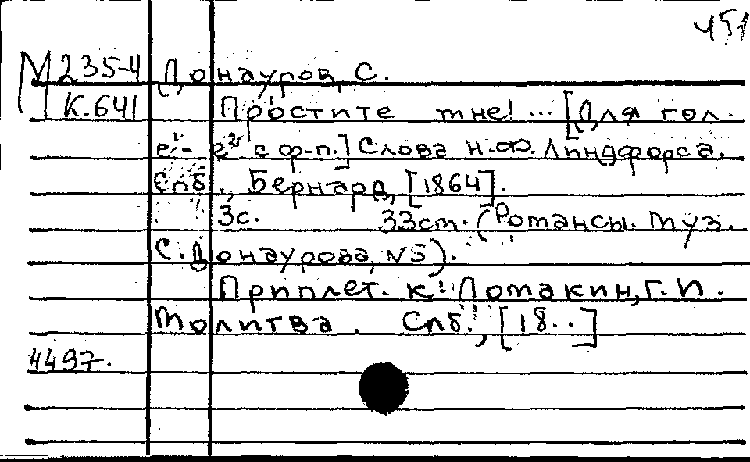 451
М 235-4 Донауров, С.
К.641 Простите мне!... [Для гол.
e¹- e² с ф-п.] Слова Н.Ф. Линдфорса.
Спб., Бернард, [1864].
3с. 33см. (Романсы. муз.
С. Донаурова, N5).
Приплет. к: Ломакин, Г.И.
Молитва. Спб., [18..]
4497.